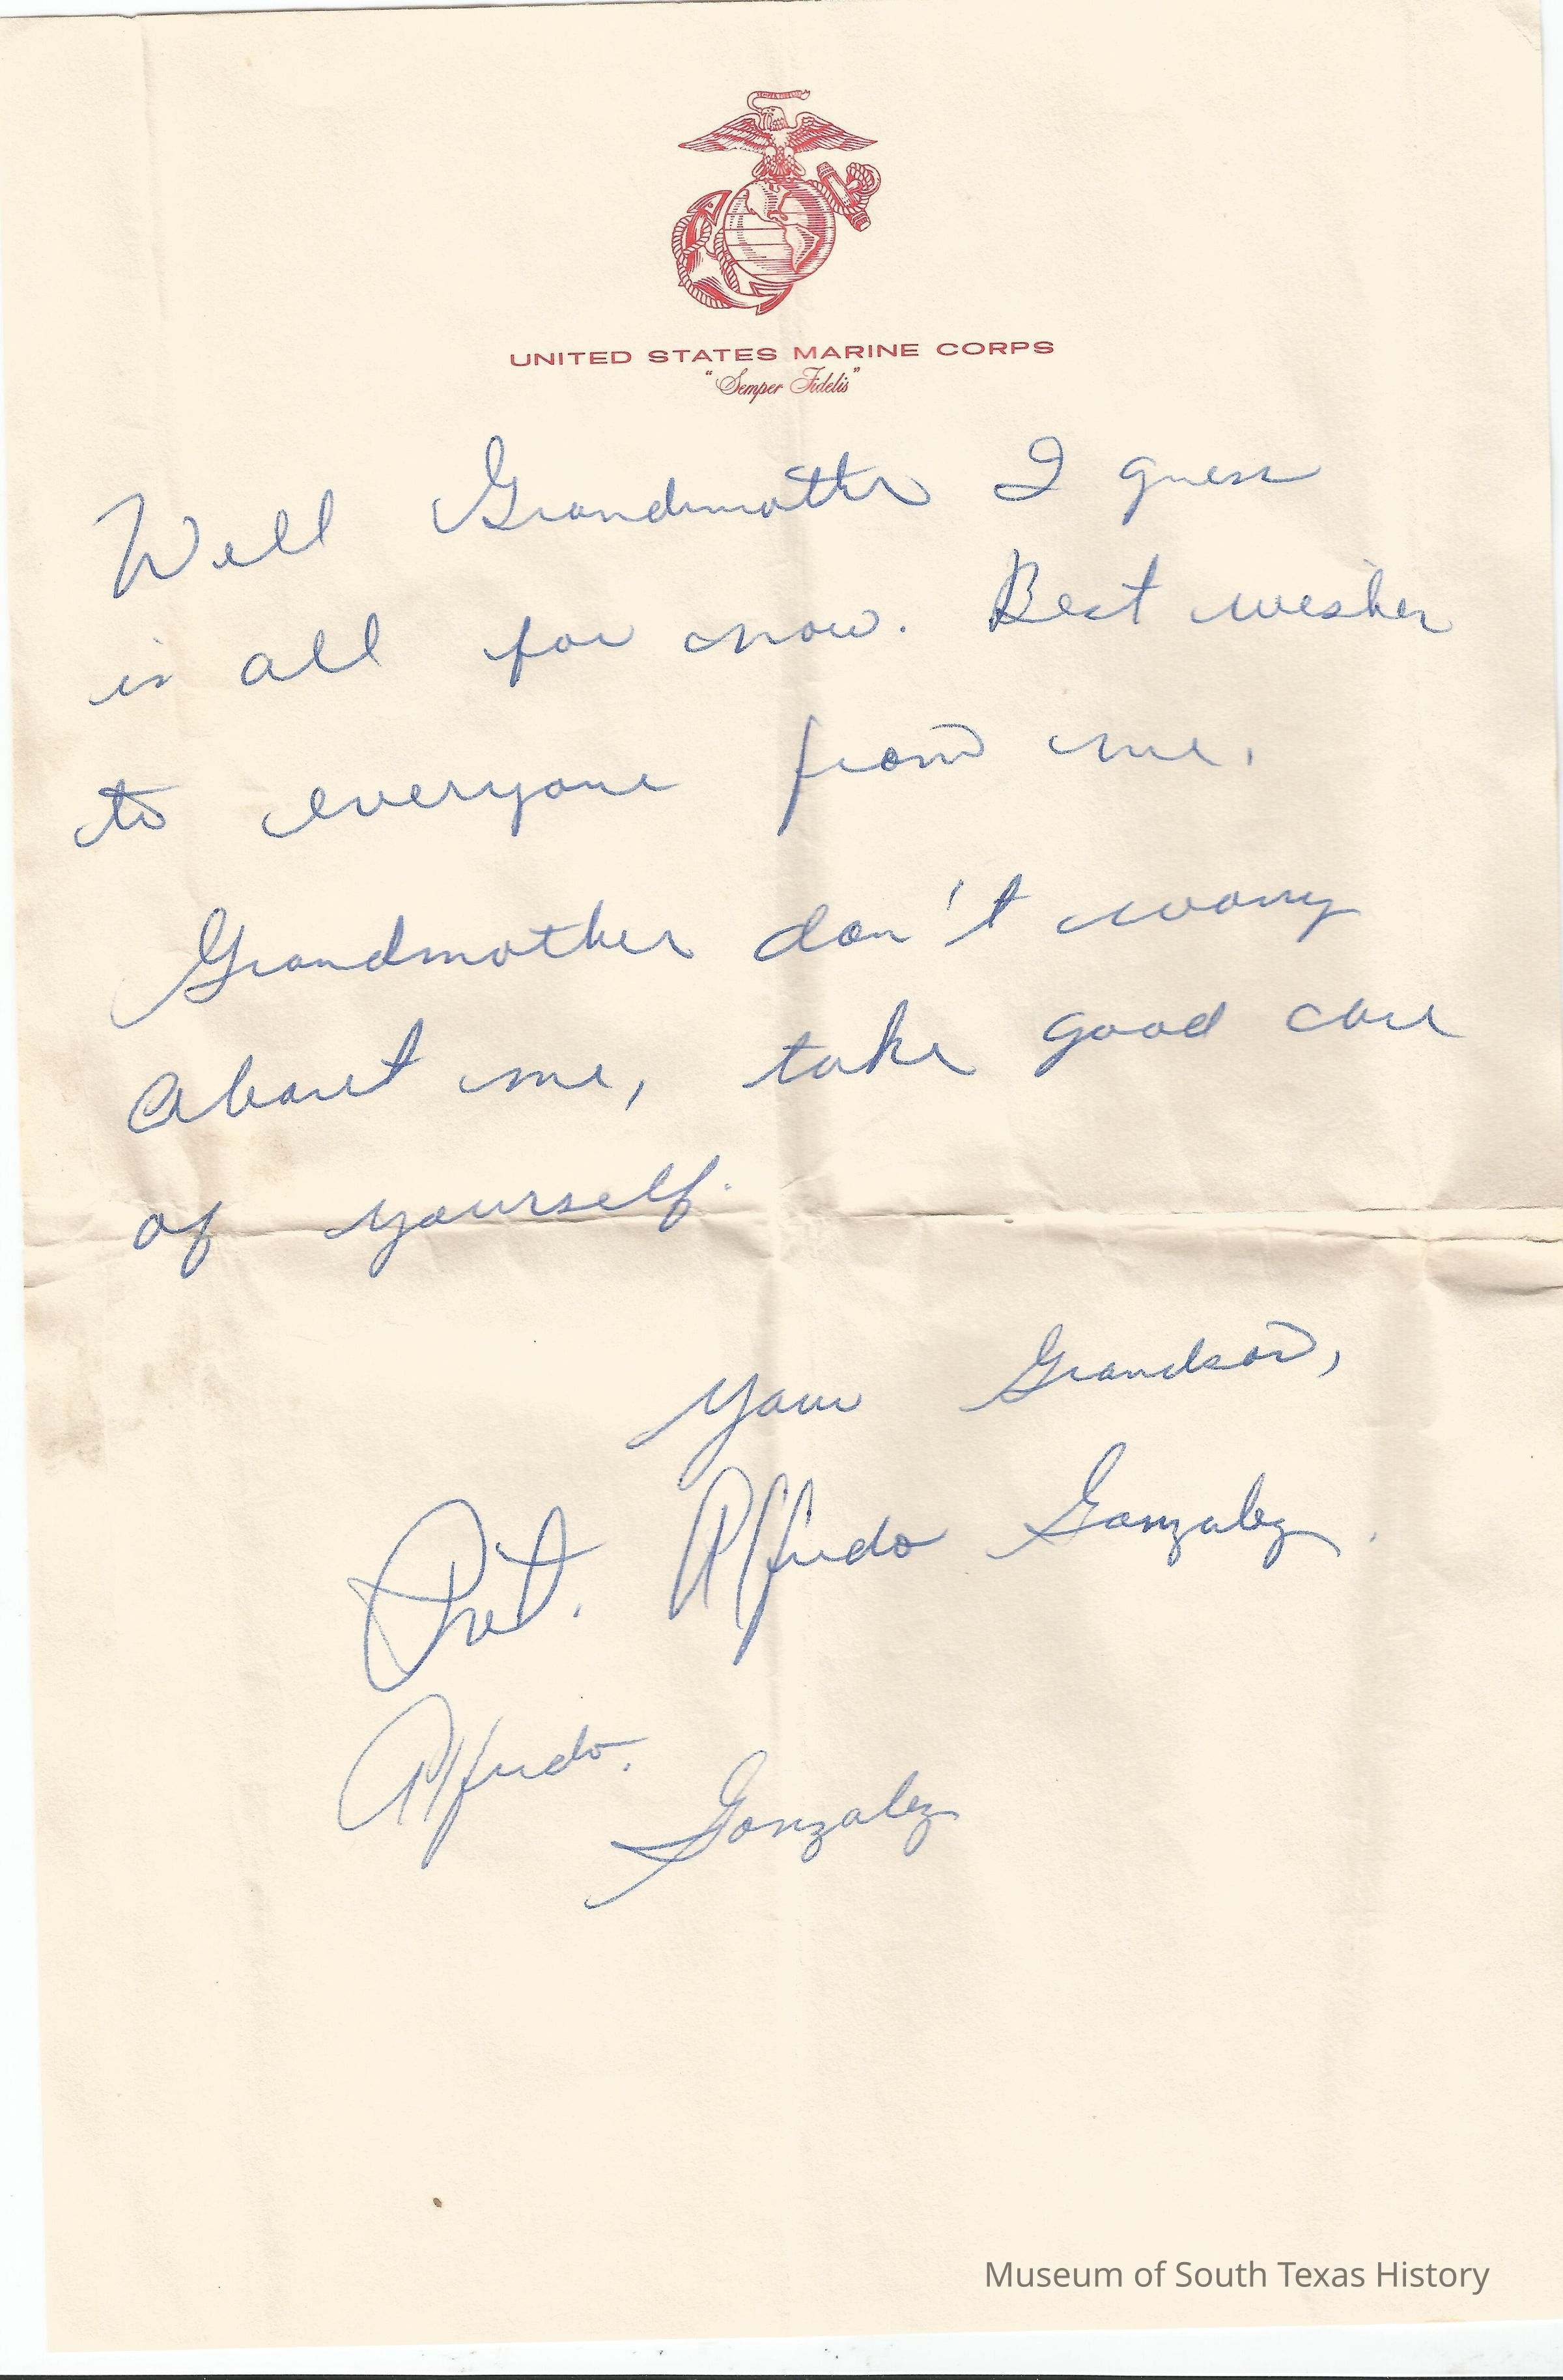 UNITED STATES MARINE CORPS
"Semper Fidelis"
Well Grandmother I guess
is all for now. Best wishes
to everyone from me.
Grandmother don't worry
about me, take good care
of yourself.
Your Grandson,
Pvt. Alfredo Gonzalez.
Alfredo.
Gonzalez
Museum of South Texas History